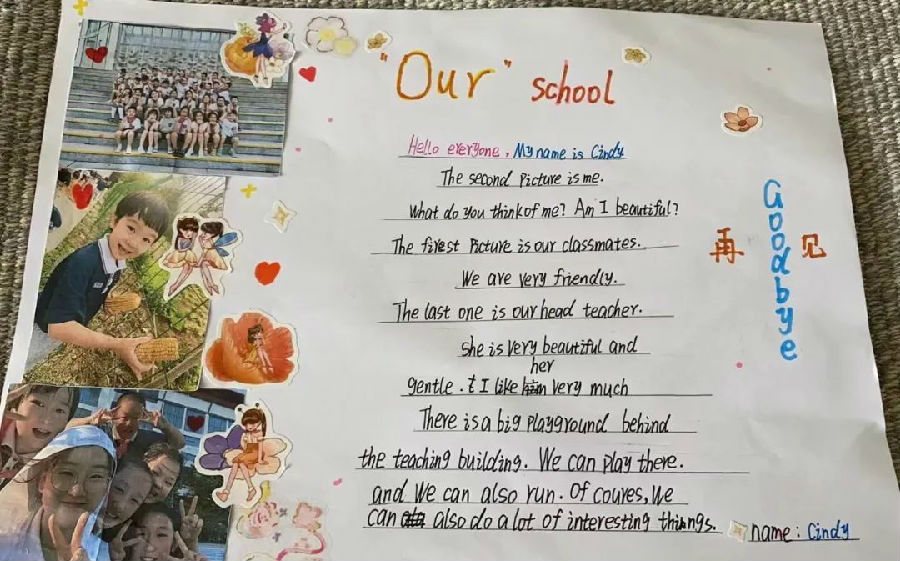 "Our" school
Hello everyone, My name is Cindy
The second Picture is me.
What do you think of me? Am I beautiful?
The firest Picture is our classmates.
We are very friendly.
The last one is our head teacher.
she is very beautiful and
her
gentle. I like very much
There is a big playground behind
the teaching building. We can play there.
and We can also run. Of coures, We
can also do a lot of interesting things.
name: Cindy
Goodbye
再见